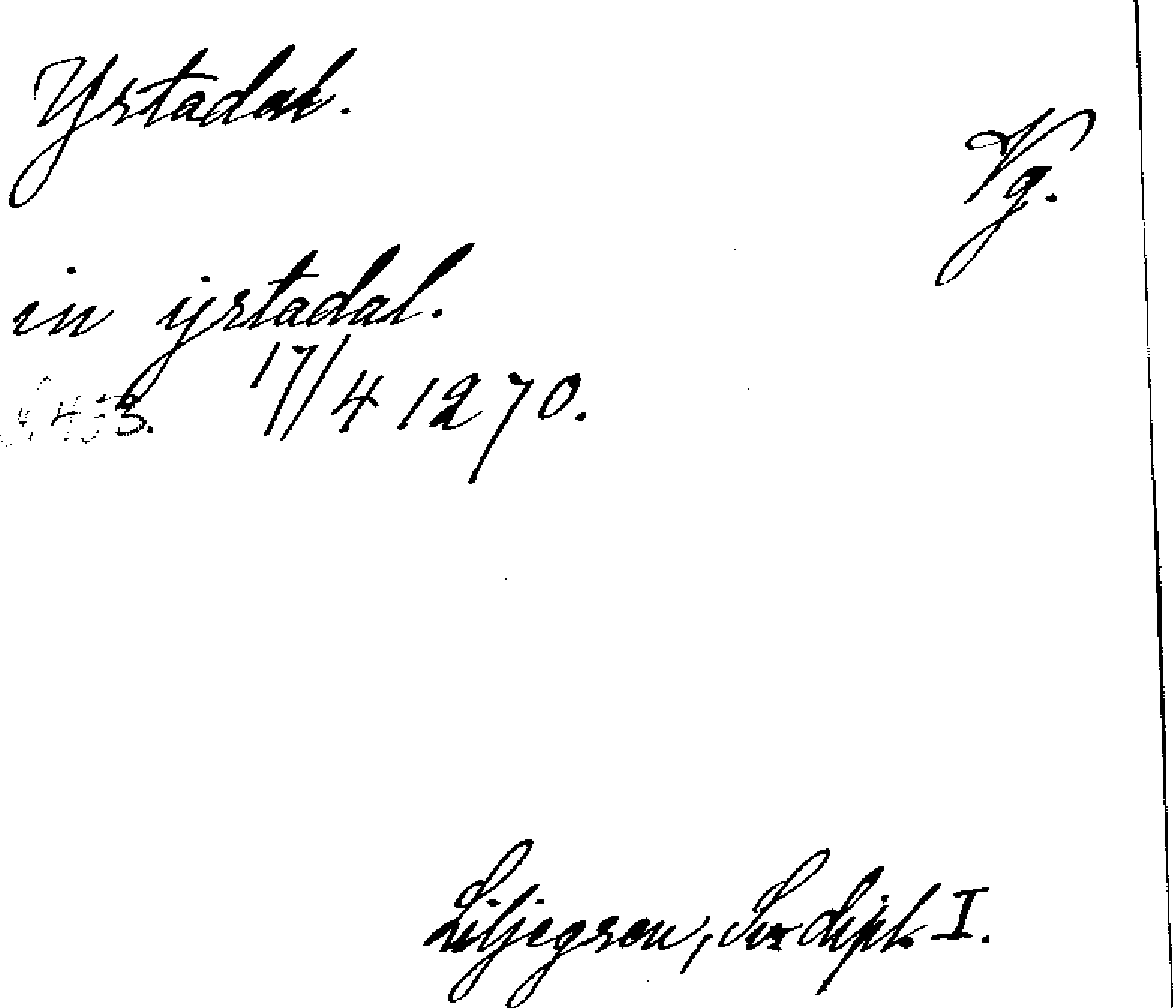 Ystadal.
Vg.
in ijstadal.
s. 453. 17/4 1270.
Liljegren, Sv. dipl. I.